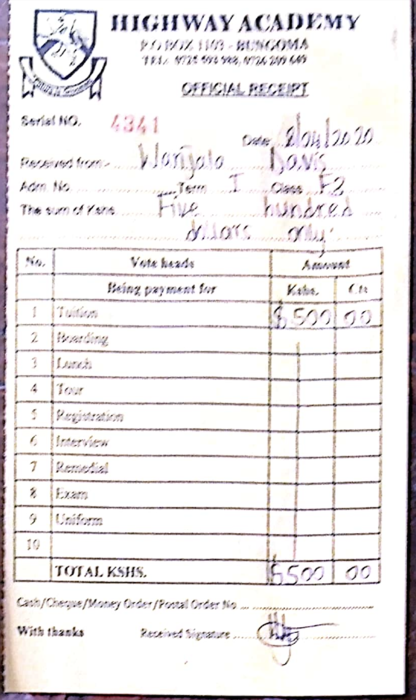 HIGHWAY ACADEMY
P.O BOX 1103 - BUNGOMA
OFFICIAL RECEIPT
Serial NO. 4341
Date 8/04/2020
Received from Davis
Adm No. Term I Class F2
The sum of Kshs Five hundred
dollars only
No. Vote heads Amount
Being payment for Kshs. Cts
1 Tuition $500 00
2 Boarding
3 Lunch
4 Tour
5 Registration
6 Interview
7 Remedial
8 Exam
9 Uniform
10
TOTAL KSHS. $500 00
Cash/Cheque/Money Order/Postal Order No
With thanks Received Signature